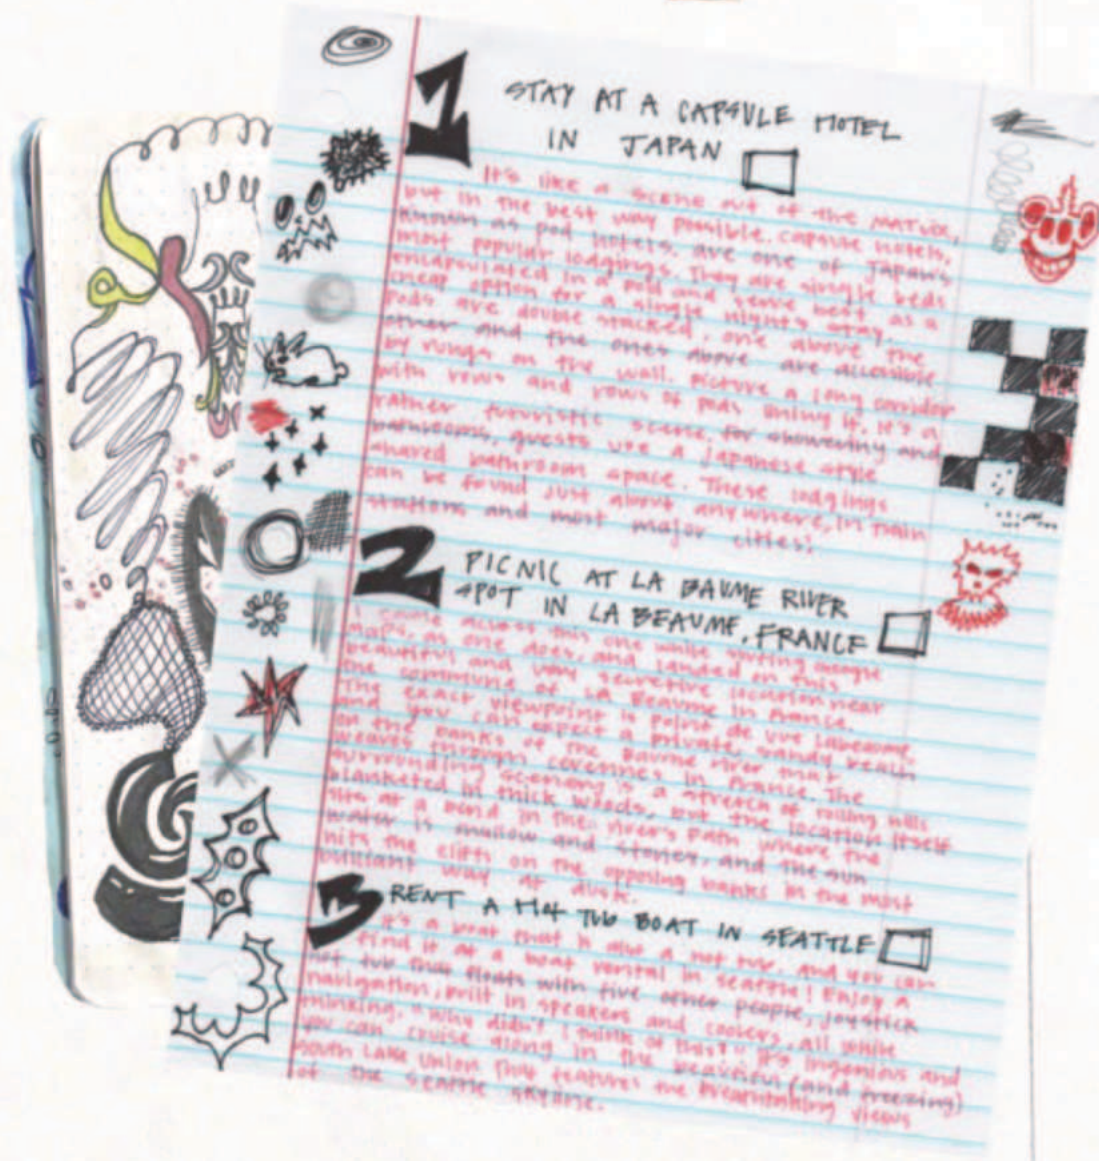 1 STAY AT A CAPSULE HOTEL
IN JAPAN
It's like a scene out of the Matrix,
but in the best way possible. Capsule hotels,
known as pod hotels, are one of Japan's
most popular lodgings. They are single beds
encapsulated in a pod and serve best as a
cheap option for a single night's stay.
Pods are double stacked, one above the
other and the ones above are accessible
by rungs on the wall. Picture a long corridor
with rows and rows of pods lining it. It's a
rather futuristic scene. For showering and
bathrooms, guests use a Japanese style
shared bathroom space. These lodgings
can be found just about anywhere, in train
stations and most major cities!
2 PICNIC AT LA BAUME RIVER
SPOT IN LA BEAUME, FRANCE
I came across this one while surfing google
maps, as one does, and landed on this
beautiful and very secretive location near
the commune of La Beaume in France.
The exact viewpoint is Point de vue labeaume,
and you can expect a private, sandy beach
on the banks of the Baume river that
weaves through in France. The
surrounding scenery is a stretch of rolling hills
blanketed in thick woods, but the location itself
sits at a bend in the river's path where the
water is shallow and stoney, and the sun
hits the cliffs on the opposing banks in the most
brilliant way at dusk.
3 RENT A HOT TUB BOAT IN SEATTLE
It's a boat that is also a hot tub, and you can
find it at a boat rental in Seattle! Enjoy a
hot tub that floats with five other people, joystick
navigation, built in speakers and coolers, all while
thinking, "why didn't I think of this?" It's ingenious and
you can cruise along in the beautiful (and freezing)
South Lake Union that features the breathtaking views
of the Seattle skyline.